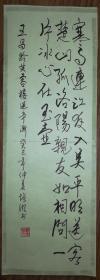 寒雨連江夜入吴平明送客
楚山孤洛陽親友如相問一
片冰心在玉壶
王昌龄芙蓉楼送辛渐癸巳年仲夏书